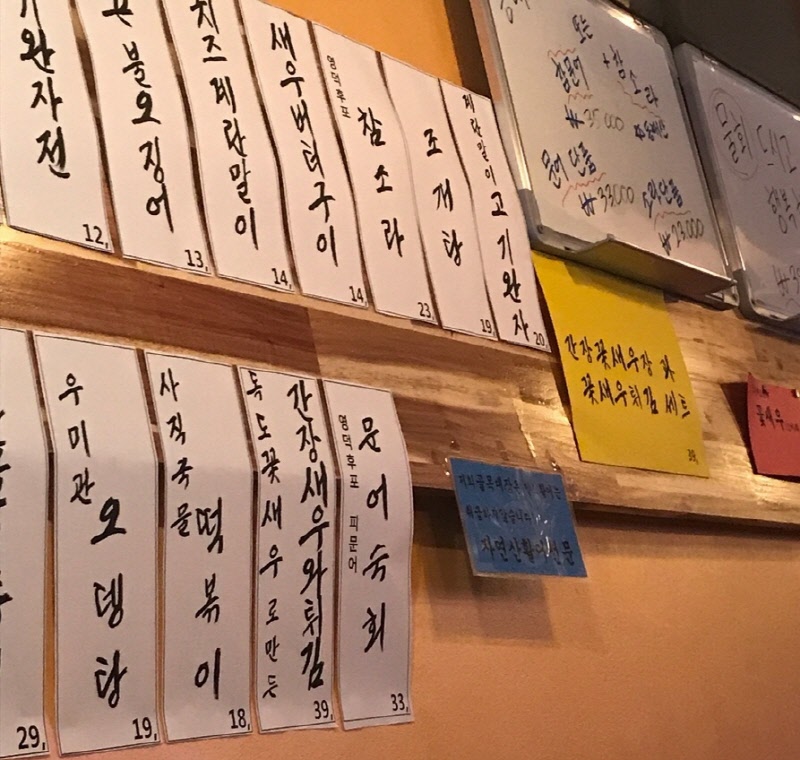 완자전
12,
불오징어
13,
치즈계란말이
14,
새우버터구이
14,
영덕후포
참소라
23,
조개탕
19,
계란말이고기완자
20,
또는
+참소라
₩35000
문어단품
₩33,000
₩23000
물회 드시고
간장꽃새우장 과
꽃새우튀김 세트
39,
꽃새우
29,
우미관
오뎅탕
19,
사직국물
떡볶이
18,
독도꽃새우로만든
간장새우와튀김
39,
영덕후포 피문어
문어숙회
33,
자연산